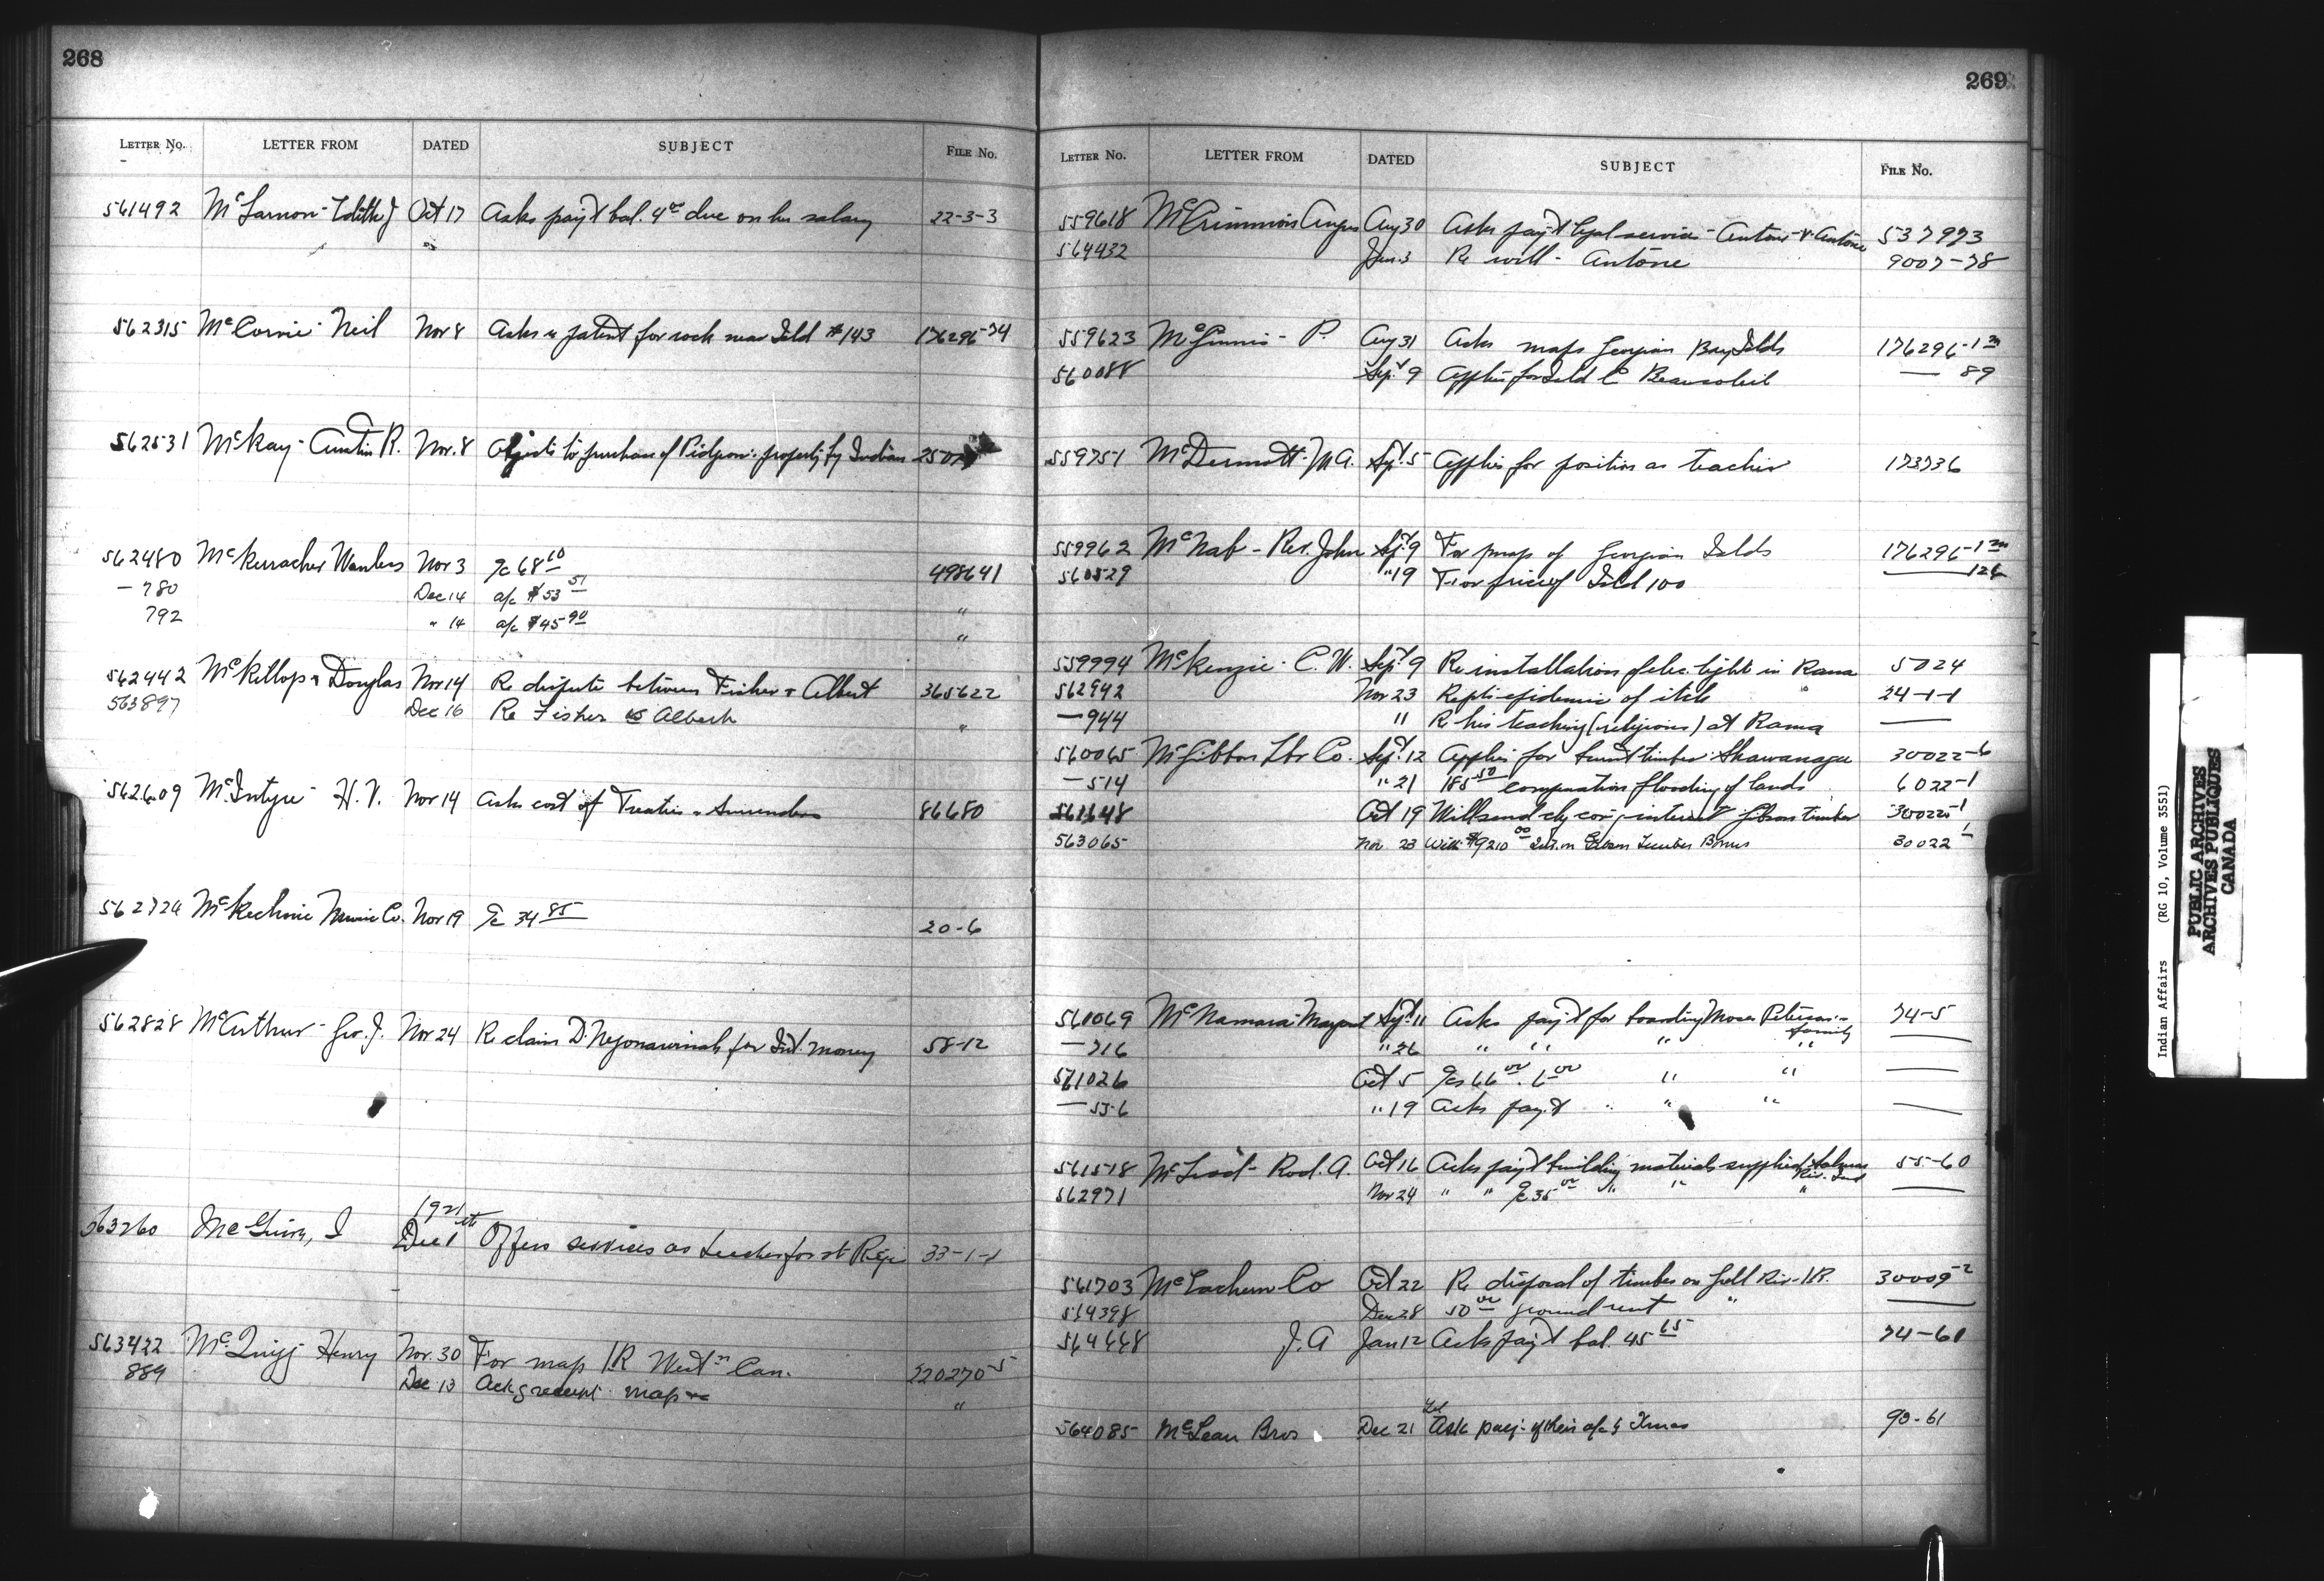 268
LETTER No. LETTER FROM DATED SUBJECT FILE No.
561492 McLarnon - Edith J Oct 17 Asks paym't bal. 4.00 due on her salary 22-3-3
562315 McCorvie - Neil Nov 8 Asks a patent for rock near Isld #143 176296-74
562531 McKay - Austin R. Nov. 8 Objects to purchase of Pidgeon's property by Indian
562480 McKerracher Wanless Nov 3 a/c 68 10 498641
- 780 Dec 14 a/c $53 51 "
792 " 14 a/c $45 90 "
562442 McKillop & Douglas Nov 14 Re dispute between Fisher & Albert 365622
563897 Dec 16 Re Fisher vs Albert "
562609 McIntyre - H. V. Nov 14 Asks cost of Treaties & Surrenders 86680
562724 McKechnie Co. Nov 19 a/c 34 85 20-6
562828 McArthur - Geo. J. Nov 24 Re claim D. for Int. money 58-12
1921
563260 McGuire, J Dec 1st Offers services as teacher for St Regis 33-1-1
563422 McQuigg Henry Nov. 30 For map I.R West'n Can. 220270-5
889 Dec 13 Ackg receipt map "
269
LETTER No. LETTER FROM DATED SUBJECT FILE No.
559618 McCrimmon Angus Aug 30 Asks paym't legal services - Antone v Antone 537973
564432 Jan. 3 Re will - Antone 9007-78
559623 McGinnis - P. Aug 31 Asks maps Georgian Bay Islds 176296-1
560088 Sept 9 Applies for Isld C Beausoleil — 89
559751 McDermott - M A. Sept. 5 Applies for position as teacher 173736
559962 McNab - Rev. John Sept 9 For map of Georgian Islds 176296-1
560529 " 19 For price of Isld 100 — 126
559994 McKenzie - C. W. Sept 9 Re installation of elec. lights in Rama 5024
562942 Nov 23 Repts epidemic of itch 24-1-1
— 944 " Re his teaching (religious) at Rama —
560065 McGibbon Lbr Co. Sept 12 Applies for burnt timber Shawanaga 30022-6
— 514 " 21 185 50 compensation flooding of lands 6022-1
561648 Oct 19 Will send chq cov'g interest Gibson timber 30022-1
563065 Nov. 23 With $9210 00 Int. on Gibson Timber Bonus 30022-1
560069 McNamara - Margaret Sept 11 Asks paym't for boarding Moses Peterson's family 74-5
— 716 " 26 " " " " —
561026 Oct 5 a/cs 66 00. 6 00 " " —
— 536 " 19 Asks paym't " " " —
561518 McLeod - Rod. A. Oct 16 Asks paym't building materials supplied Salmon Riv. Ind 55-60
562971 Nov 24 " " a/c 35 00 " " " —
561703 McEachern Co Oct 22 Re disposal of timber on Gull Riv. I.R. 30009-2
564398 Dec 28 50 00 ground rent " —
564668 J. A Jan 12 Asks paym't bal. 45 65 74-61
564085 McLean Bros Dec 21 Ask pay't of their a/c by Xmas 90-61
Indian Affairs (RG 10, Volume 3551)
PUBLIC ARCHIVES
ARCHIVES PUBLIQUES
CANADA